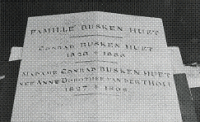 FAMILLE BUSKEN HUET
CONRAD BUSKEN HUET
MADAME CONRAD BUSKEN HUET
NÉE ANNE DOROTHÉE VAN DER THOLL
1827